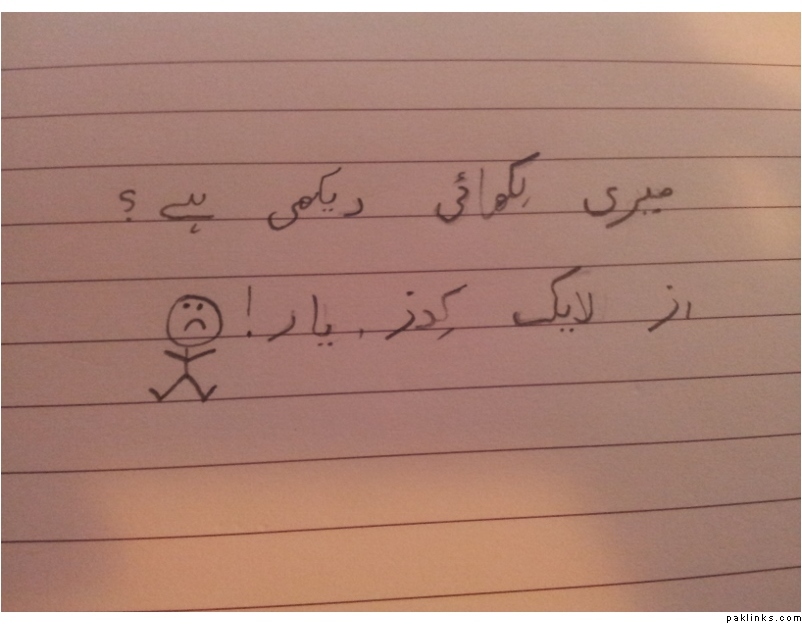 میری لِکھائی دیکھی ہے؟
از لایک کِدز، یار!
paklinks.com